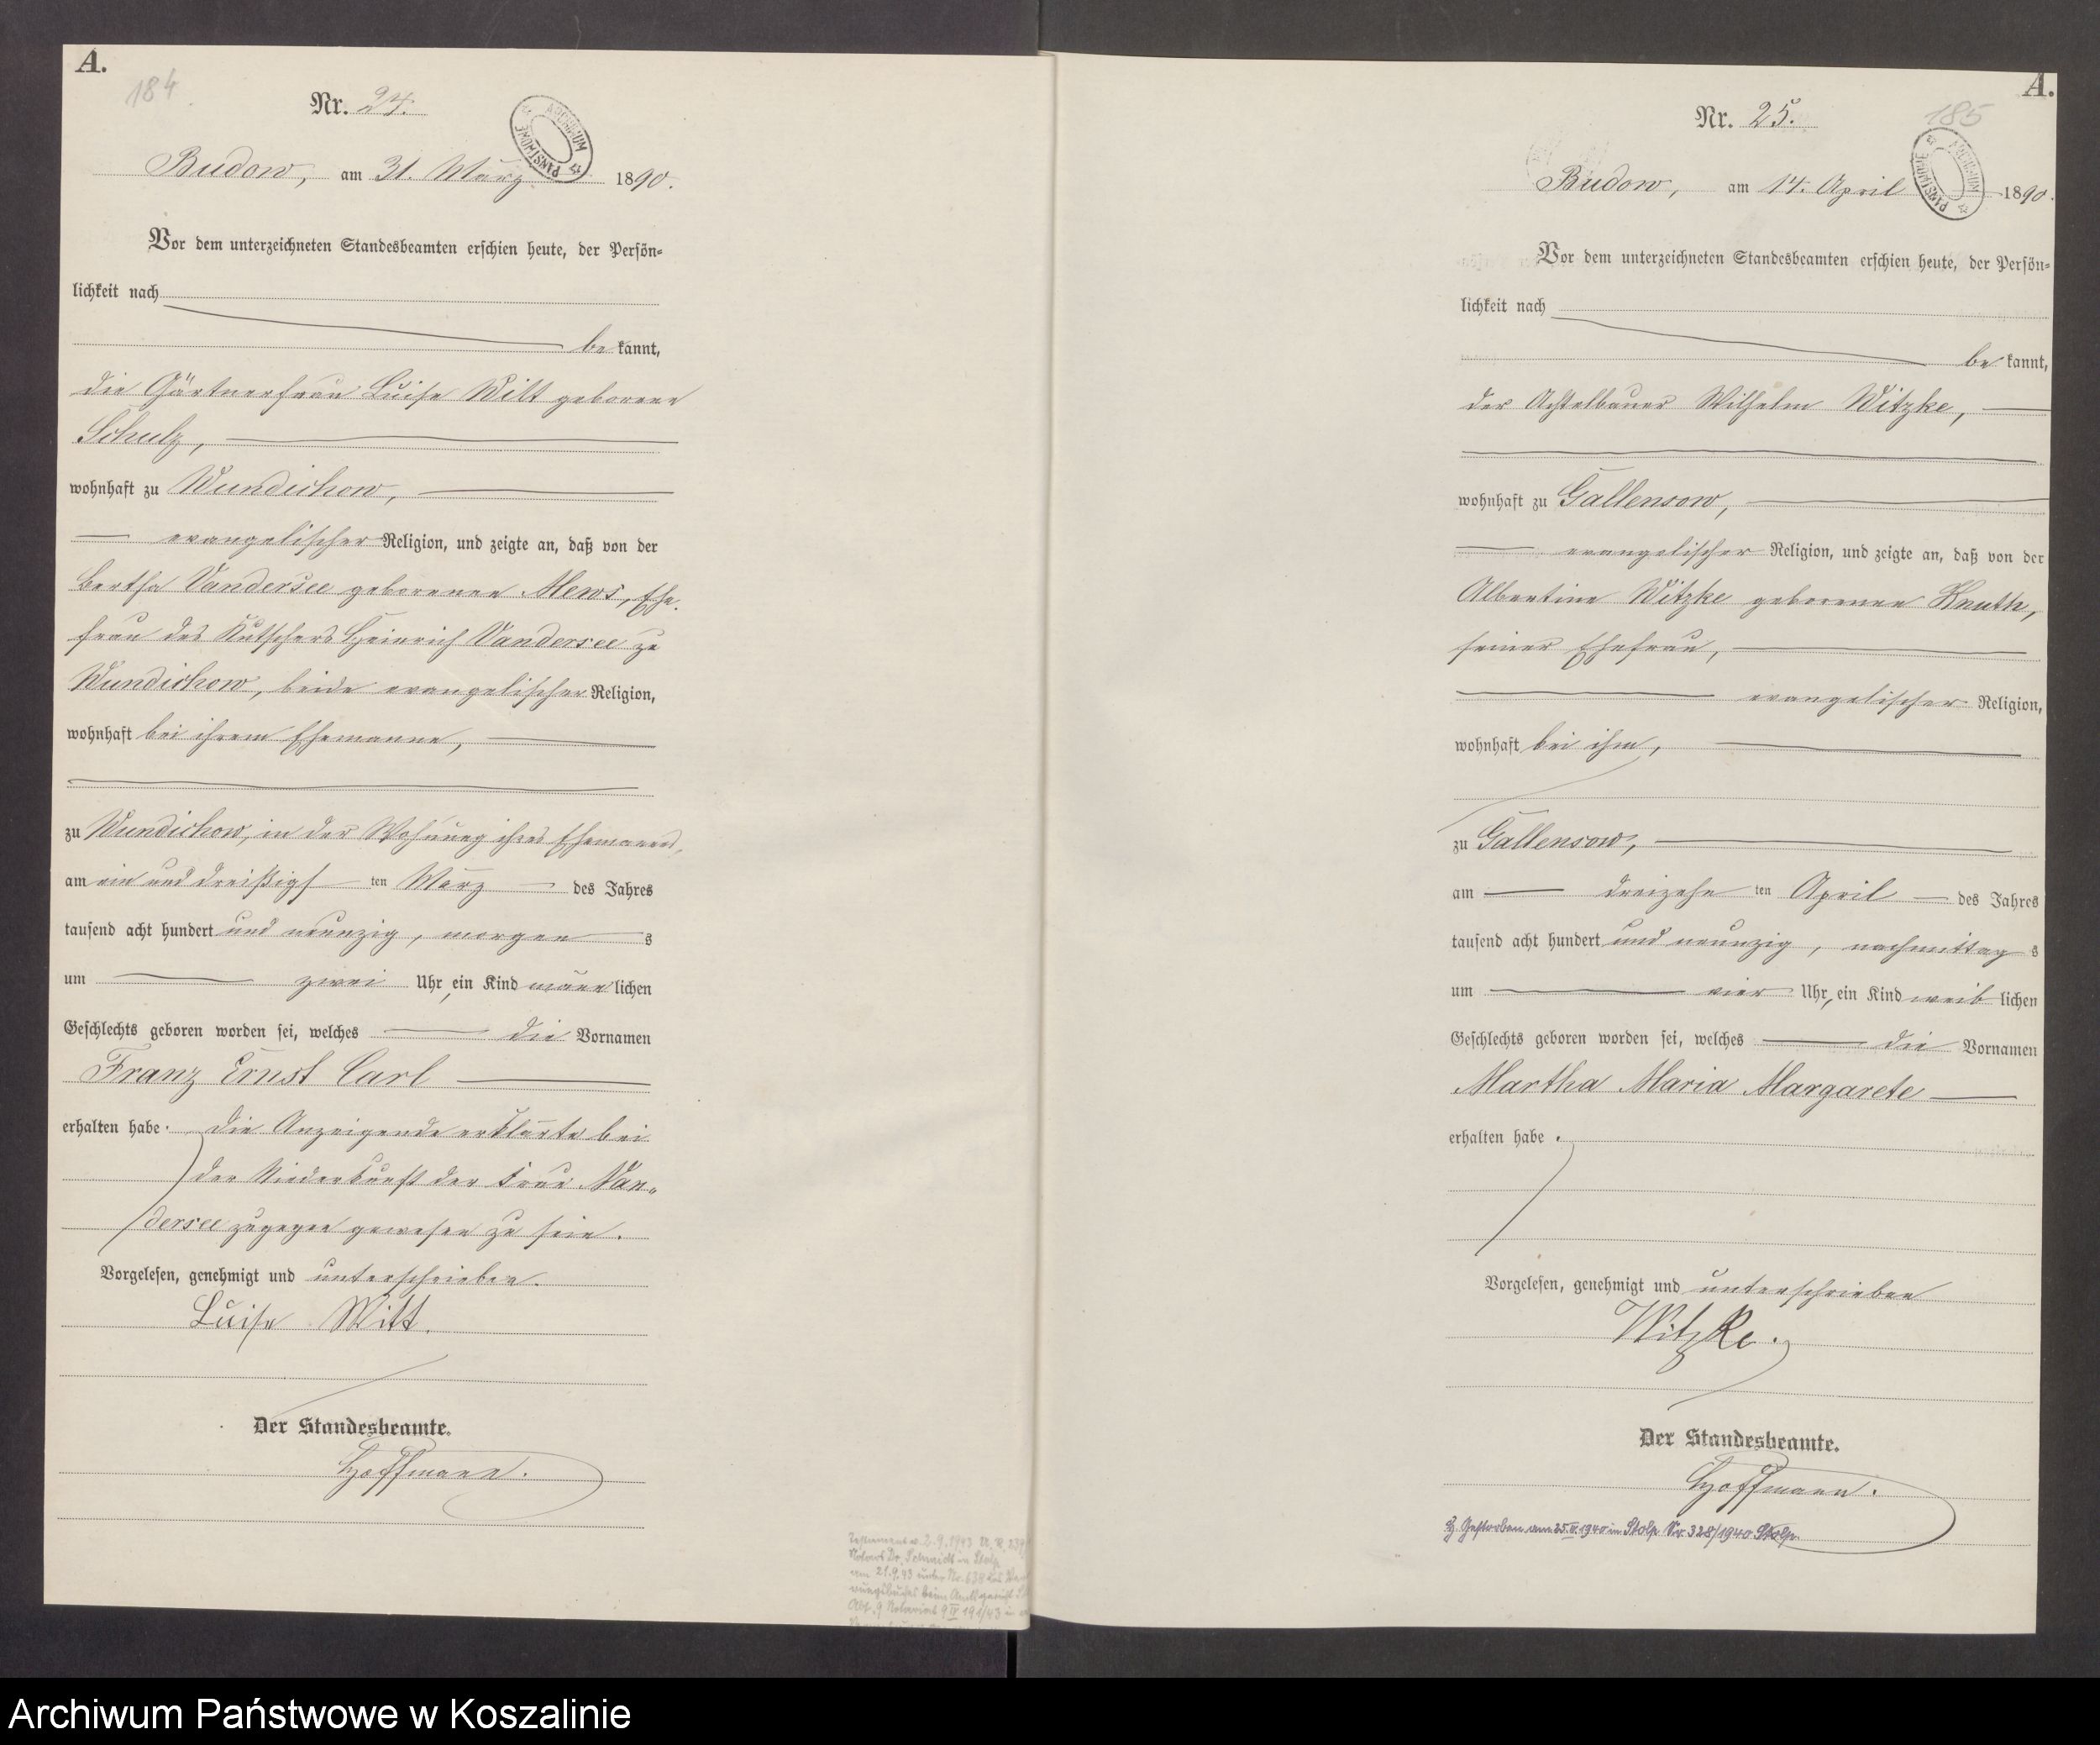 A.
184
Nr. 24.
ARCHIWUM PAŃSTWOWE
Budow, am 31. März 1890.
Vor dem unterzeichneten Standesbeamten erschien heute, der Persön-
lichkeit nach
be kannt,
die Gärtnerfrau Luise Witt geborene
Schulz,
wohnhaft zu Wundichow,
evangelischer Religion, und zeigte an, daß von der
Bertha Vandersee geborenen Mews, Ehe-
frau des Kutschers Heinrich Vandersee zu
Wundichow, beide evangelischer Religion,
wohnhaft bei ihrem Ehemanne,
zu Wundichow, in der Wohnung ihres Ehemannes,
am ein und dreißigsten März des Jahres
tausend acht hundert und neunzig, morgens
um zwei Uhr, ein Kind männlichen
Geschlechts geboren worden sei, welches die Vornamen
Franz Ernst Carl
erhalten habe. Die Anzeigende erklärte bei
der Niederkunft der Frau Van-
dersee zugegen gewesen zu sein.
Vorgelesen, genehmigt und unterschrieben.
Luise Witt.
Der Standesbeamte.
Hoffmann.
Testament v. 2.9.1943
Notars Dr. Schmidt in Stolp
am 21.9.43 unter Nr. 638 des
beim Amtsgericht
A.
185
Nr. 25.
ARCHIWUM PAŃSTWOWE
Budow, am 14. April 1890.
Vor dem unterzeichneten Standesbeamten erschien heute, der Persön-
lichkeit nach
be kannt,
der Achtelbauer Wilhelm Witzke,
wohnhaft zu Gallensow,
evangelischer Religion, und zeigte an, daß von der
Albertine Witzke geborenen Knuth,
seiner Ehefrau,
evangelischer Religion,
wohnhaft bei ihm,
zu Gallensow,
am dreizehnten April des Jahres
tausend acht hundert und neunzig, nachmittags
um vier Uhr, ein Kind weiblichen
Geschlechts geboren worden sei, welches die Vornamen
Martha Maria Margarete
erhalten habe.
Vorgelesen, genehmigt und unterschrieben
Witzke.
Der Standesbeamte.
Hoffmann.
Gestorben am 25.V.1940 in Stolp Nr. 328/1940 Stolp
Archiwum Państwowe w Koszalinie